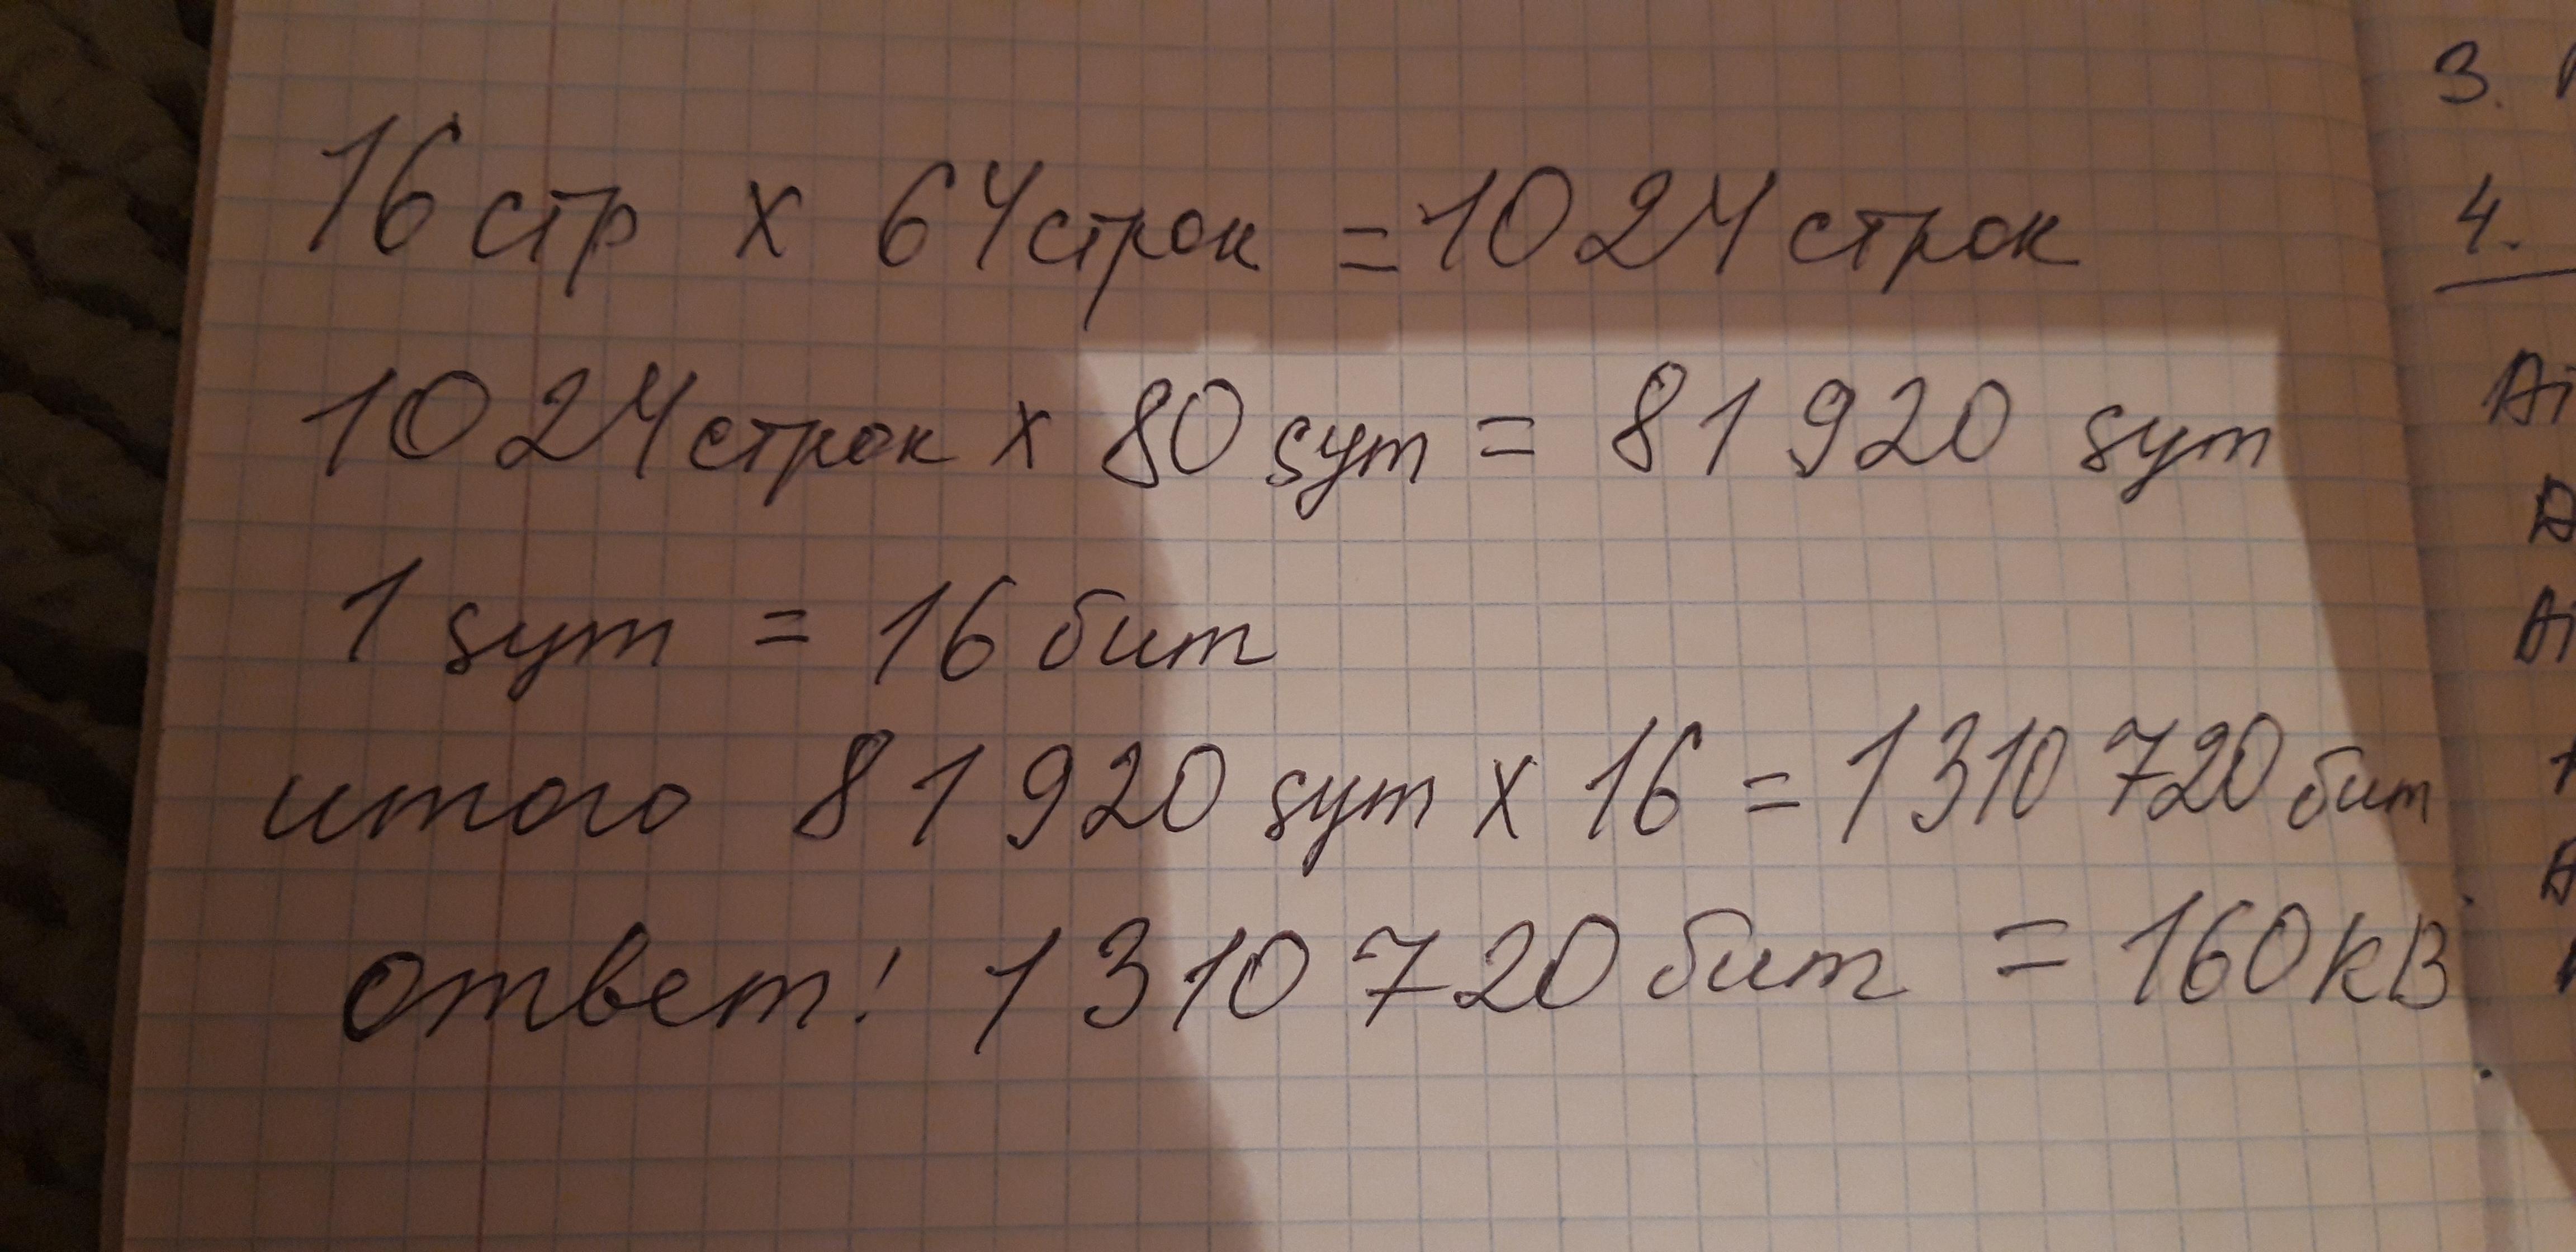 16 стр х 64 строк = 1024 строк
1024 строк х 80 sym = 81 920 sym
1 sym = 16 бит
итого 81 920 sym х 16 = 1 310 720 бит
ответ! 1 310 720 бит = 160 kB
3.
4.
Ai
Ai